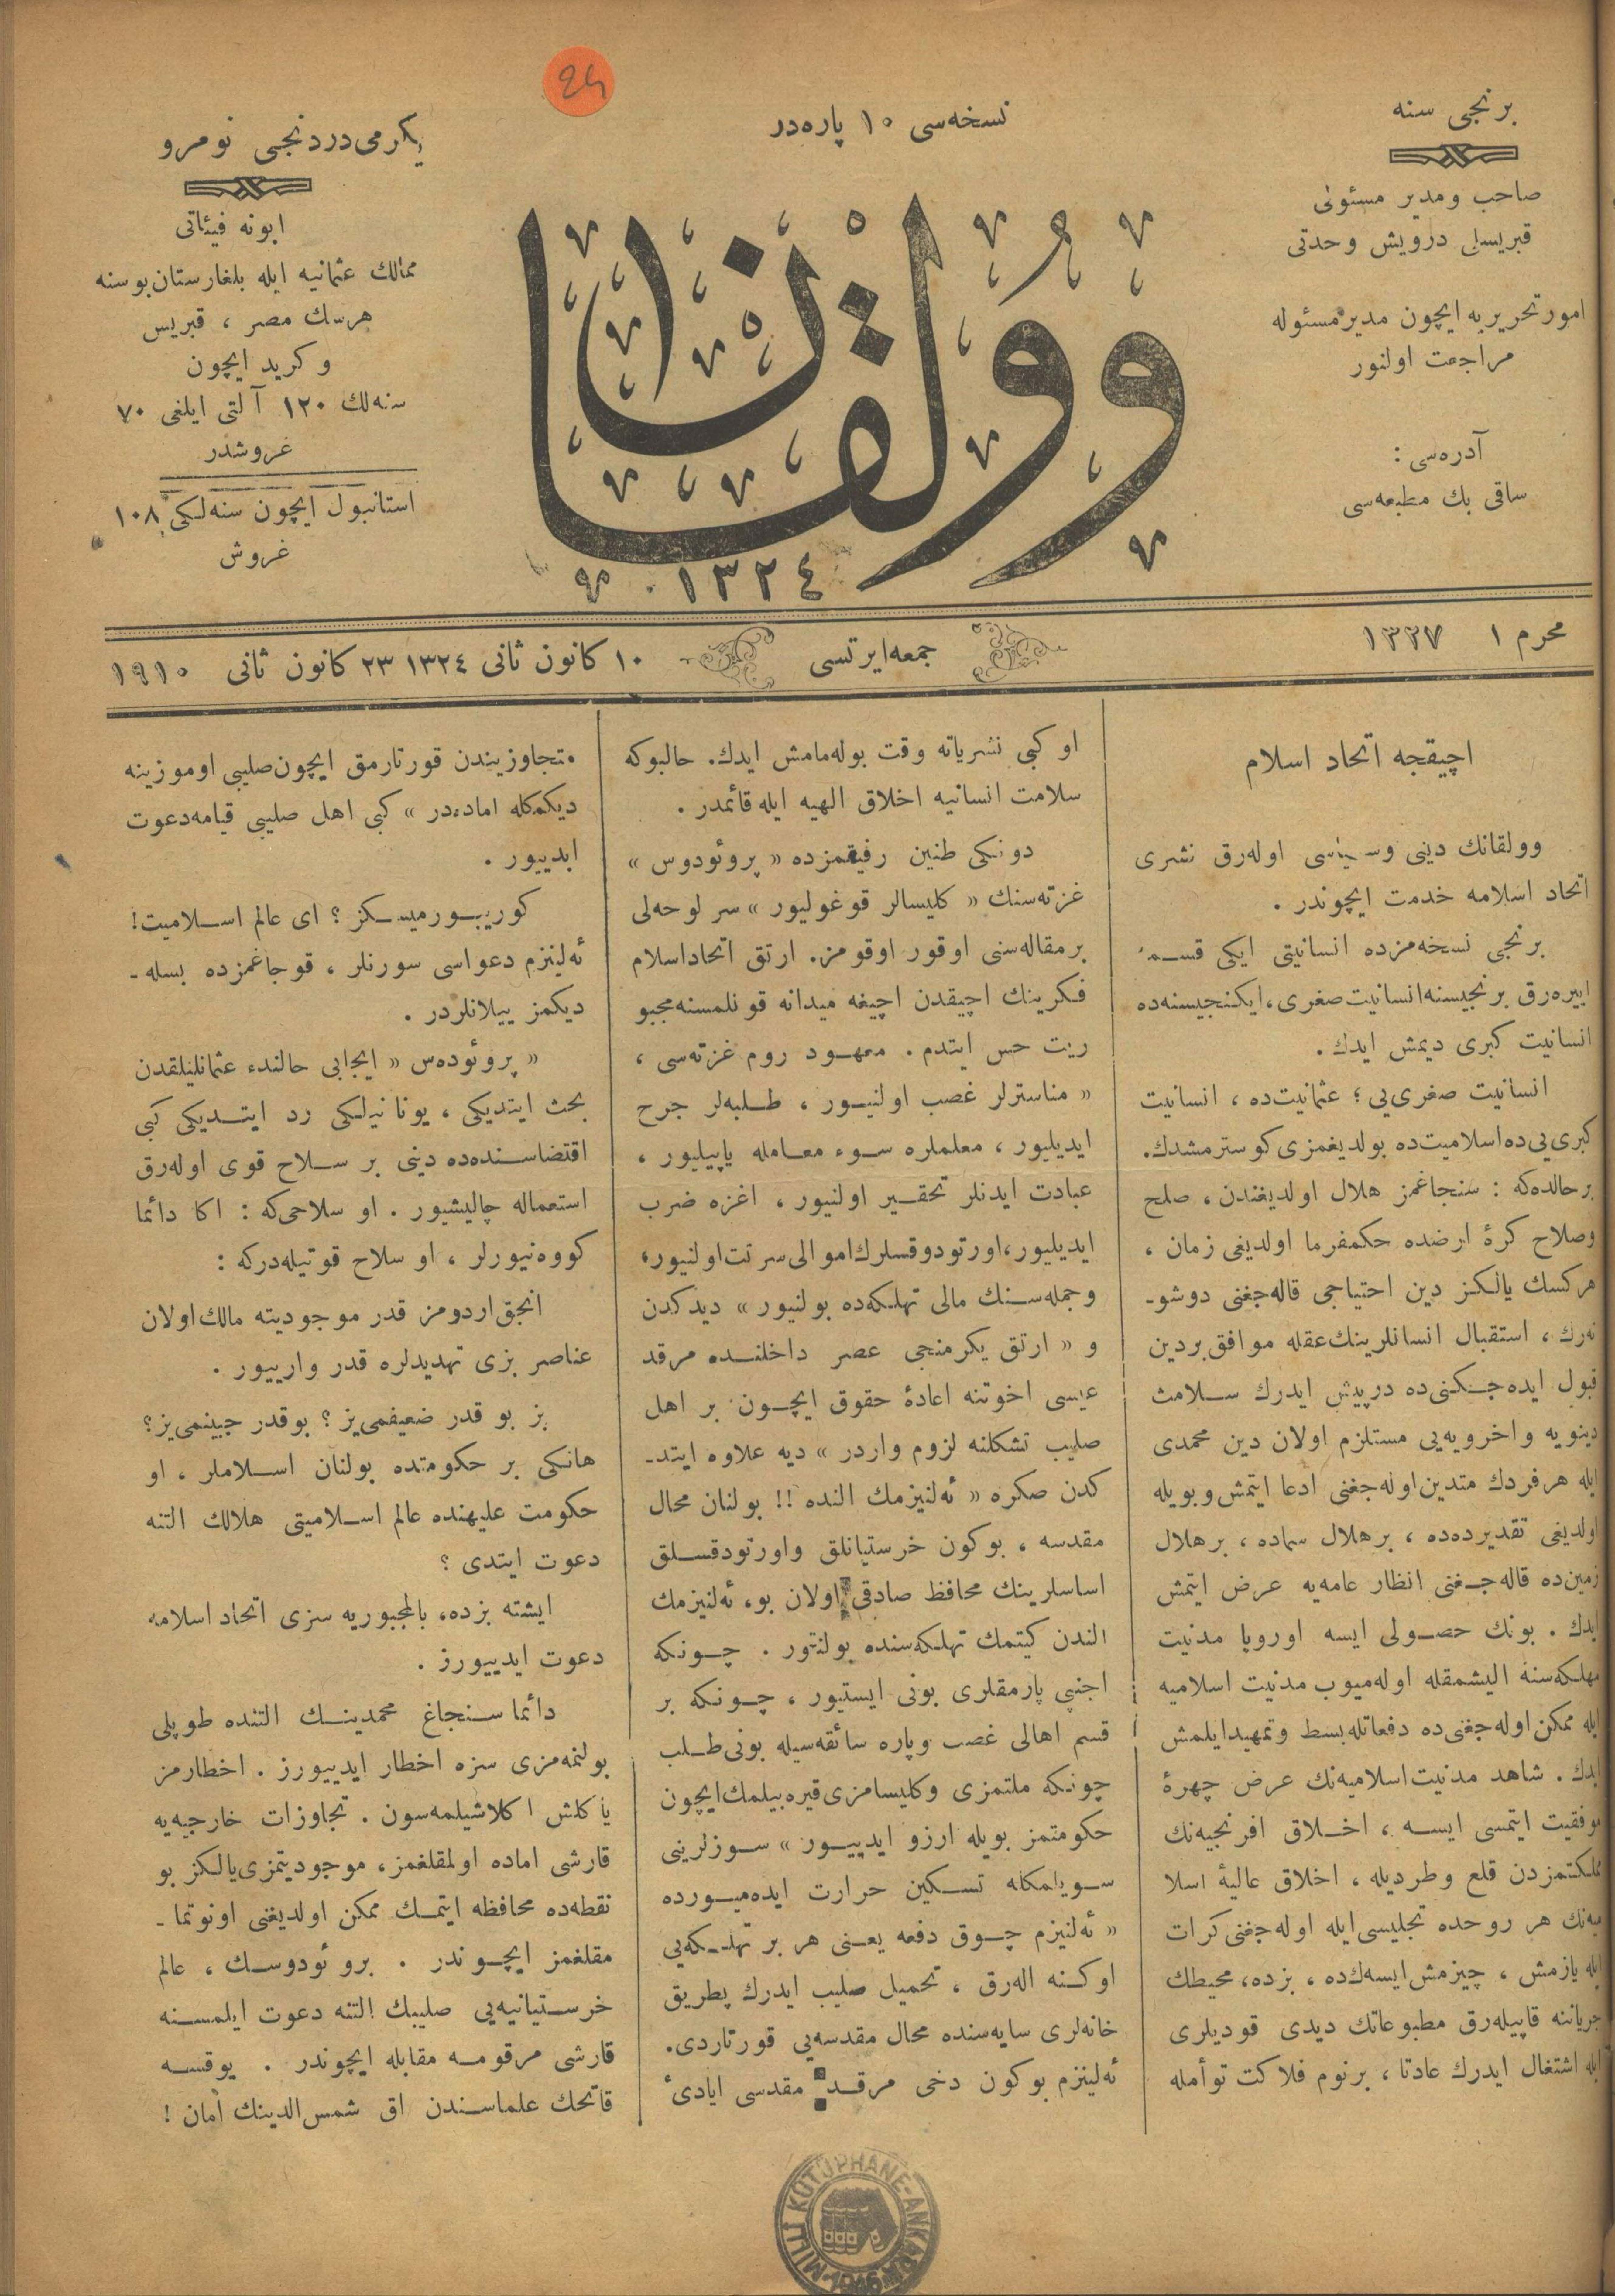 برنجی سنه
صاحب ومدیر مسئولی
قبریسلی درویش وحدتی
امور تحریریه ایچون مدیر مسئوله
مراجعت اولنور
آدره‌سی :
ساقی بك مطبعه‌سی
24
نسخه‌سی ١٠ پاره‌در
وولقان
١٣٢٤
یكرمی‌دردنجی نومرو
ابونه فیئاتی
ممالك عثمانیه ایله بلغارستان بوسنه
هرسك مصر ، قبریس
و كرید ایچون
سنه‌لك ١٢٠ آلتی ایلغی ٧٠
غروشدر
استانبول ایچون سنه‌لكی ١٠٨
غروش
محرم ١ ١٣٢٧
جمعه‌ایرتسی
١٠ كانون ثانی ١٣٢٤ ٢٣ كانون ثانی ١٩١٠
اچیقجه اتحاد اسلام
وولقانك دینی وسیاسی اوله‌رق نشری
اتحاد اسلامه خدمت ایچوندر .
برنجی نسخه‌مزده انسانیتی ایكی قسمه
اییره‌رق برنجیسنه انسانیت صغری، ایكنجیسنه‌ده
انسانیت كبری دیمش ایدك .
انسانیت صغری‌یی ؛ عثمانیت‌ده ، انسانیت
كبری‌یی‌ده اسلامیت‌ده بولدیغمزی كوسترمشدك.
بر حالده‌كه : سنجاغمز هلال اولدیغندن ، صلح
وصلاح كرۀ ارضده حكمفرما اولدیغی زمان ،
هركسك یالكز دین احتیاجی قاله‌جغنی دوشو-
نه‌رك ، استقبال انسانلرینك عقله موافق بردین
قبول ایده‌جكنی‌ده درپیش ایدرك سلامت
دینویه واخرویه‌یی مستلزم اولان دین محمدی
ایله هرفردك متدین اوله‌جغنی ادعا ایتمش وبویله
اولدیغی تقدیرده‌ده ، برهلال سماده ، برهلال
زمین‌ده قاله‌جغنی انظار عامه‌یه عرض ایتمش
ایدك . بونك حصولی ایسه اوروپا مدنیت
مهلكه‌سنه الیشمقله اوله‌میوب مدنیت اسلامیه
ایله ممكن اوله‌جغنی‌ده دفعاتله بسط وتمهید ایلمش
ایدك . شاهد مدنیت اسلامیه‌نك عرض چهرۀ
موفقیت ایتمسی ایسه ، اخلاق افرنجیه‌نك
مملكتمزدن قلع وطردیله ، اخلاق عالیۀ اسلا
میه‌نك هر روحده تجلیسی ایله اوله‌جغنی كرات
ایله یازمش ، چیزمش ایسه‌ك‌ده ، بزده، محیطك
جریاننه قاپیله‌رق مطبوعاتك دیدی قودیلری
ایله اشتغال ایدرك عادتا ، برنوم فلاكت توأمله
او كبی نشریاته وقت بوله‌مامش ایدك. حالبوكه
سلامت انسانیه اخلاق الهیه ایله قائمدر .
دونكی طنین رفیقمزده « پروئودوس »
غزته‌سنك « كلیسالر قوغولیور » سر لوحه‌لی
بر مقاله‌سنی اوقور اوقومز. ارتق اتحاد اسلام
فكرینك اچیقدن اچیغه میدانه قونلمسنه مجبو
ریت حس ایتدم . معهود روم غزته‌سی ،
« مناسترلر غصب اولنیور ، طلبه‌لر جرح
ایدیلیور ، معلملره سوء معامله یاپیلیور ،
عبادت ایدنلر تحقیر اولنیور ، اغزه ضرب
ایدیلیور، اورتودوقسلرك اموالی سرقت اولنیور،
وجمله‌سنك مالی تهلكه‌ده بولنیور » دیدكدن
و « ارتق یكرمنجی عصر داخلنده مرقد
عیسی اخوتنه اعادۀ حقوق ایچون بر اهل
صلیب تشكلنه لزوم واردر » دیه علاوه ایتد-
كدن صكره « ئه‌لنیزمك النده !! بولنان محال
مقدسه ، بوكون خرستیانلق واورتودقسلق
اساسلرینك محافظ صادقی اولان بو، ئه‌لنیزمك
الندن كیتمك تهلكه‌سنده بولنتور . چونكه
اجنبی پارمقلری بونی ایستیور ، چونكه بر
قسم اهالی غصب وپاره سائقه‌سیله بونی طلب
چونكه ملتمزی وكلیسامزی قیره بیلمك ایچون
حكومتمز بویله ارزو ایدییور » سوزلرینی
سویلمكله تسكین حرارت ایده‌میورده
« ئه‌لنیزم چوق دفعه یعنی هر بر تهلكه‌یی
اوكنه اله‌رق ، تحمیل صلیب ایدرك پطریق
خانه‌لری سایه‌سنده محال مقدسه‌یی قورتاردی.
ئه‌لینزم بوكون دخی مرقد مقدسی ایادئ
متجاوزیندن قورتارمق ایچون صلیبی اوموزینه
دیكمكله اماده‌در » كبی اهل صلیبی قیامه دعوت
ایدییور .
كوریورمیسكز ؟ ای عالم اسلامیت!
ئه‌لینزم دعواسی سورنلر ، قوجاغمزده بسله-
دیكمز ییلانلردر .
« پروئوده‌س « ایجابی حالنده عثمانلیلقدن
بحث ایتدیكی ، یونانیلكی رد ایتدیكی كبی
اقتضاسنده‌ده دینی بر سلاح قوی اوله‌رق
استعماله چالیشیور . او سلاحی‌كه : اكا دائما
كووه‌نیورلر ، او سلاح قوتیله‌دركه :
انجق اردومز قدر موجودیته مالك اولان
عناصر بزی تهدیدلره قدر وارییور .
بز بو قدر ضعیفمی‌یز ؟ بوقدر جبینمی‌یز؟
هانكی بر حكومتده بولنان اسلاملر ، او
حكومت علیهنده عالم اسلامیتی هلالك التنه
دعوت ایتدی ؟
ایشته بزده، بالمجبوریه سزی اتحاد اسلامه
دعوت ایدییورز .
دائما سنجاغ محمدینك التنده طوپلی
بولنمه‌مزی سزه اخطار ایدییورز . اخطارمز
یاكلش اكلاشیلمه‌سون . تجاوزات خارجیه‌یه
قارشی اماده اولمقلغمز، موجودیتمزی یالكز بو
نقطه‌ده محافظه ایتمك ممكن اولدیغنی اونوتما-
مقلغمز ایچوندر . بروئودوسك ، عالم
خرستیانیه‌یی صلیبك التنه دعوت ایلمسنه
قارشی مرقومه مقابله ایچوندر . یوقسه
فاتحك علماسندن اق شمس الدینك امان !
MİLLÎ KÜTÜPHANE-ANKARA
1946